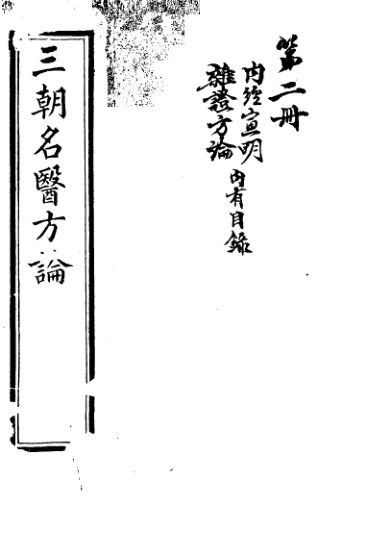 第二冊
內經宣明
雜證方論 內有目錄
三朝名醫方論